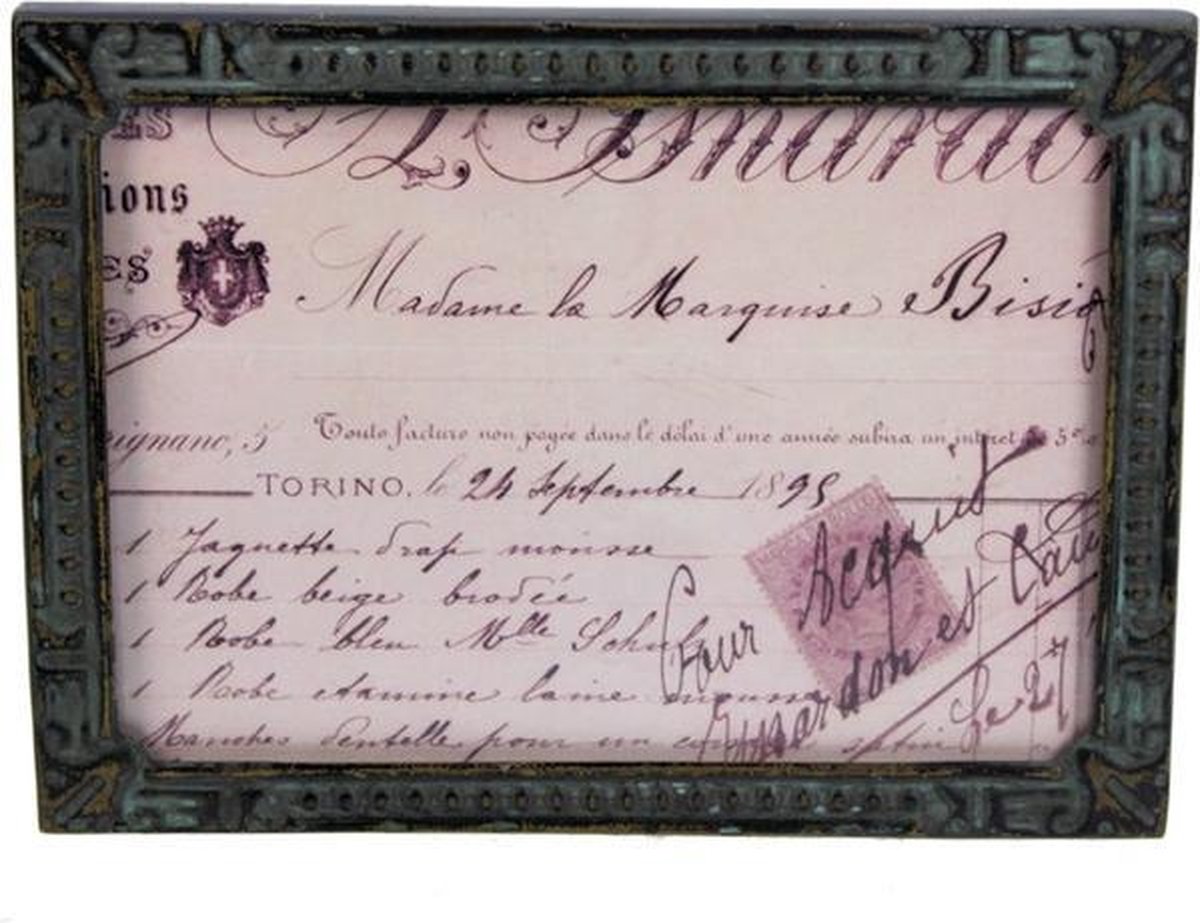 ES
ions
ES
Madame la Marquise
ignano, 5
Toute facture non payée dans le délai d'une année subira un intéret de 5%
TORINO, le 24 Septembre 1895
1 Jaquette drap mousse
1 Robe beige brodée
1 Robe bleu Mlle
1 Robe etamine laine mousse
Manches dentelle pour un satin
Pour Acquit
et
Le 27